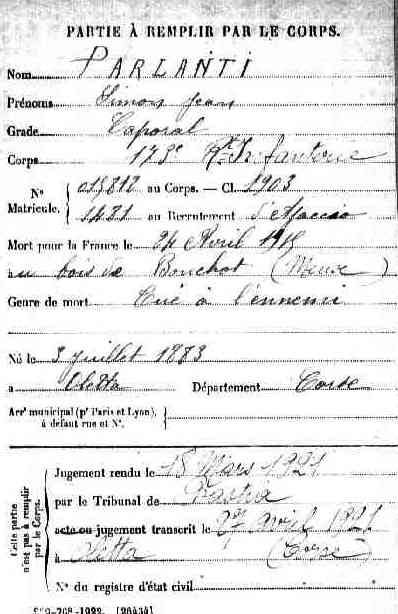 PARTIE À REMPLIR PAR LE CORPS.
Nom PARLANTI
Prénoms Simon Jean
Grade Caporal
Corps 173e Rt Infanterie
Nº Matricule. { 018812 au Corps. — Cl. 1903
1421 au Recrutement d'Ajaccio
Mort pour la France le 24 Avril 1915
au bois de Bouchot (Meuse)
Genre de mort Tué à l'ennemi
Né le 3 juillet 1883
à Oletta Département Corse
Arrt municipal (pr Paris et Lyon), à défaut rue et Nº. {
Cette partie n'est pas à remplir par le Corps. {
Jugement rendu le 18 Mars 1921
par le Tribunal de Bastia
acte ou jugement transcrit le avril 1921
à Oletta (Corse)
Nº du registre d'état civil